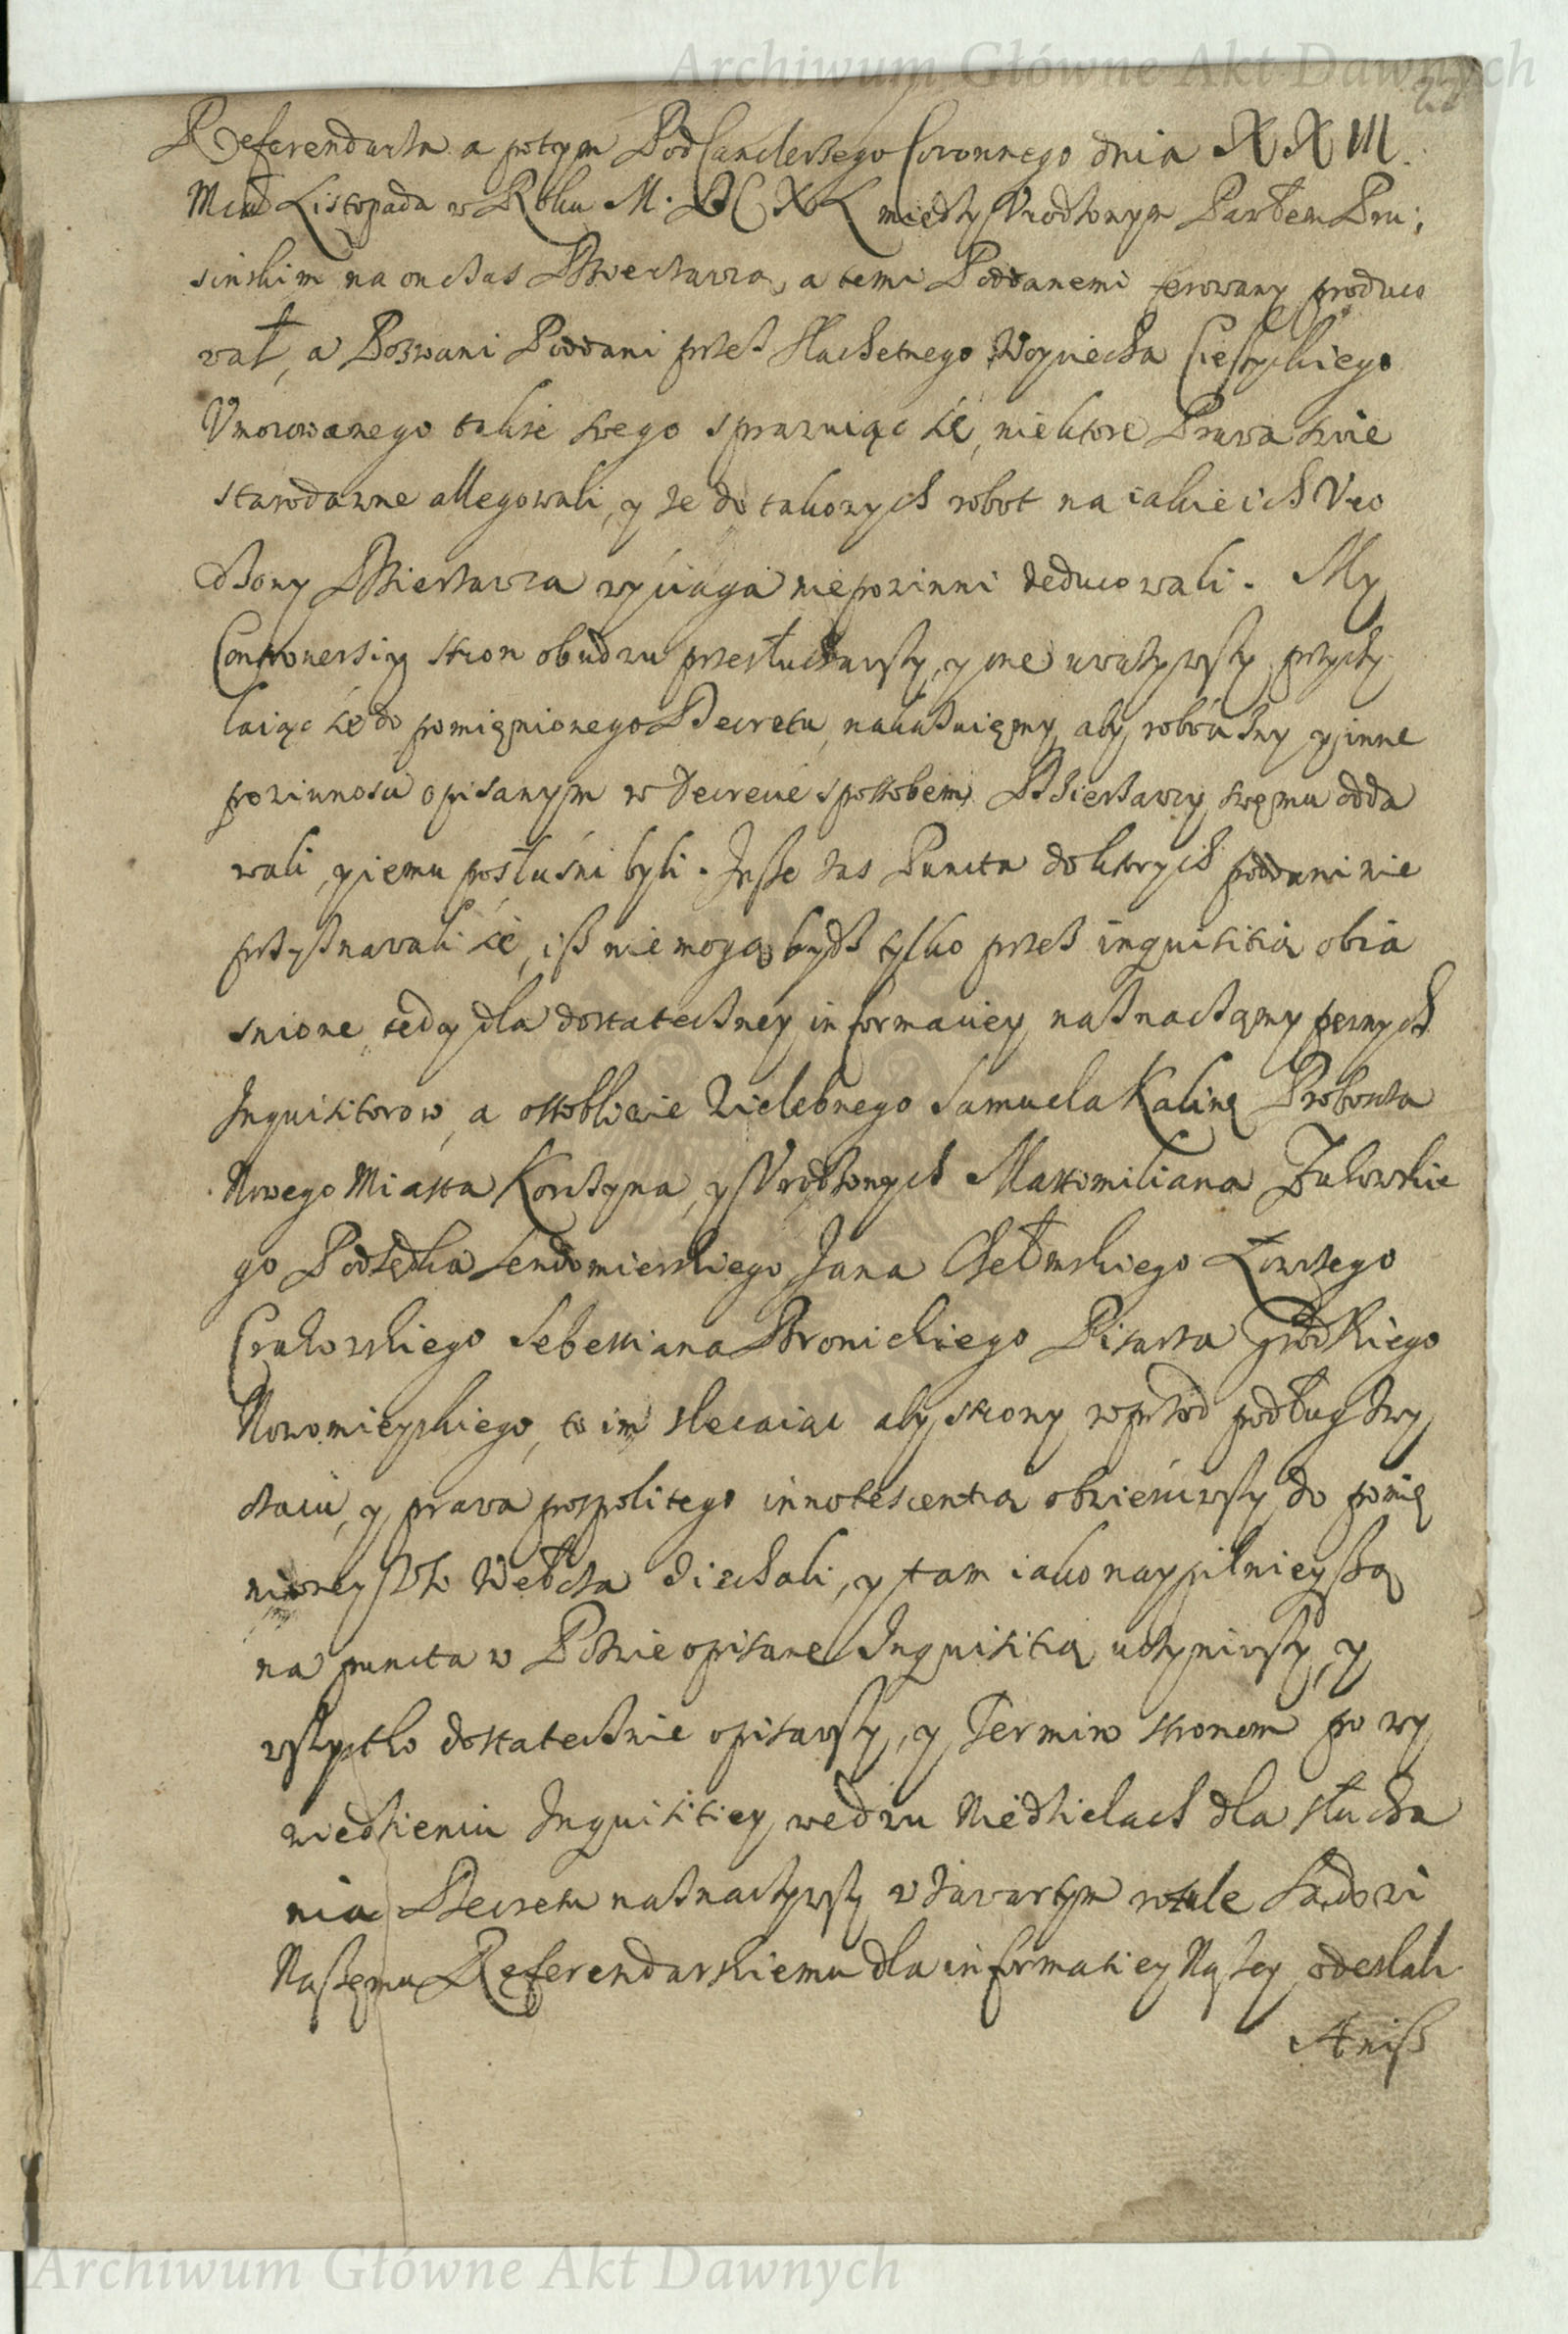 Archiwum Główne Akt Dawnych
Referendarza a potym PodCanclerzego Coronnego dnia XXIII.
Listopada w Roku M. DC XL między Urodzonym Pawłem Pru,
sinskim na onczas Dzierzawca, a temi Poddanemi ferowany produco
wał, a Pozwani Poddani przez Slachetnego Woyciecha
Umocowanego także swego sprawuiąc się, niektore Prawa swie
starodawne allegowali, y że do takowych robot na iakie ich Uro
dzony Dzierzawca wyciąga niepowinni deducowali. My
Controversiy stron obudwu przesłuchawszy, y one uważywszy przychy
laiąc się do pomięnionego Decretu, nakazuięmy, aby robocizny y inne
powinnosci opisanym w Decrecie sposobem Dzierzawcy swęmu odda
wali, y iemu posłuśni byli. Jeśże zas Puncta do ktorych poddani nie
przyznawali się, iż nie mogą bydź tylko przez inquisitią obia
snione, tedy dla dostateczney informaciey naznaczamy pewnych
Inquisitorow, a osobliwie Wielebnego Samuela Kalinę Proboszcza
Nowego Miasta Korczyna, y Urodzonych Maximiliana Żukowskie
go Podsędka Sendomierskiego Jana Chełmskiego Łowczego
Crakowskiego Sebestiana Bronickiego Pisarza Grodzkiego
Nowomieyskiego, to im zlecaiąc aby strony wprzod podług zwy
czaiu, y prawa pospolitego innotescentią obwieściwszy do pomię
nioney Wsi Wełcza ziechali, y tam iako naypilnieyszą
na puncta w Pozwie opisane Inquisitią uczyniwszy, y
wszystko dostatecznie opisawszy, y Termin stronom po wy
wiedzieniu Inquisitiey we dwu Niedzielach dla słucha
nia Decretu naznaczywszy zawartym rotule Sądowi
Naszęmu Referendarskiemu dla informatiey Naszey odeslali
Aniż
Archiwum Główne Akt Dawnych